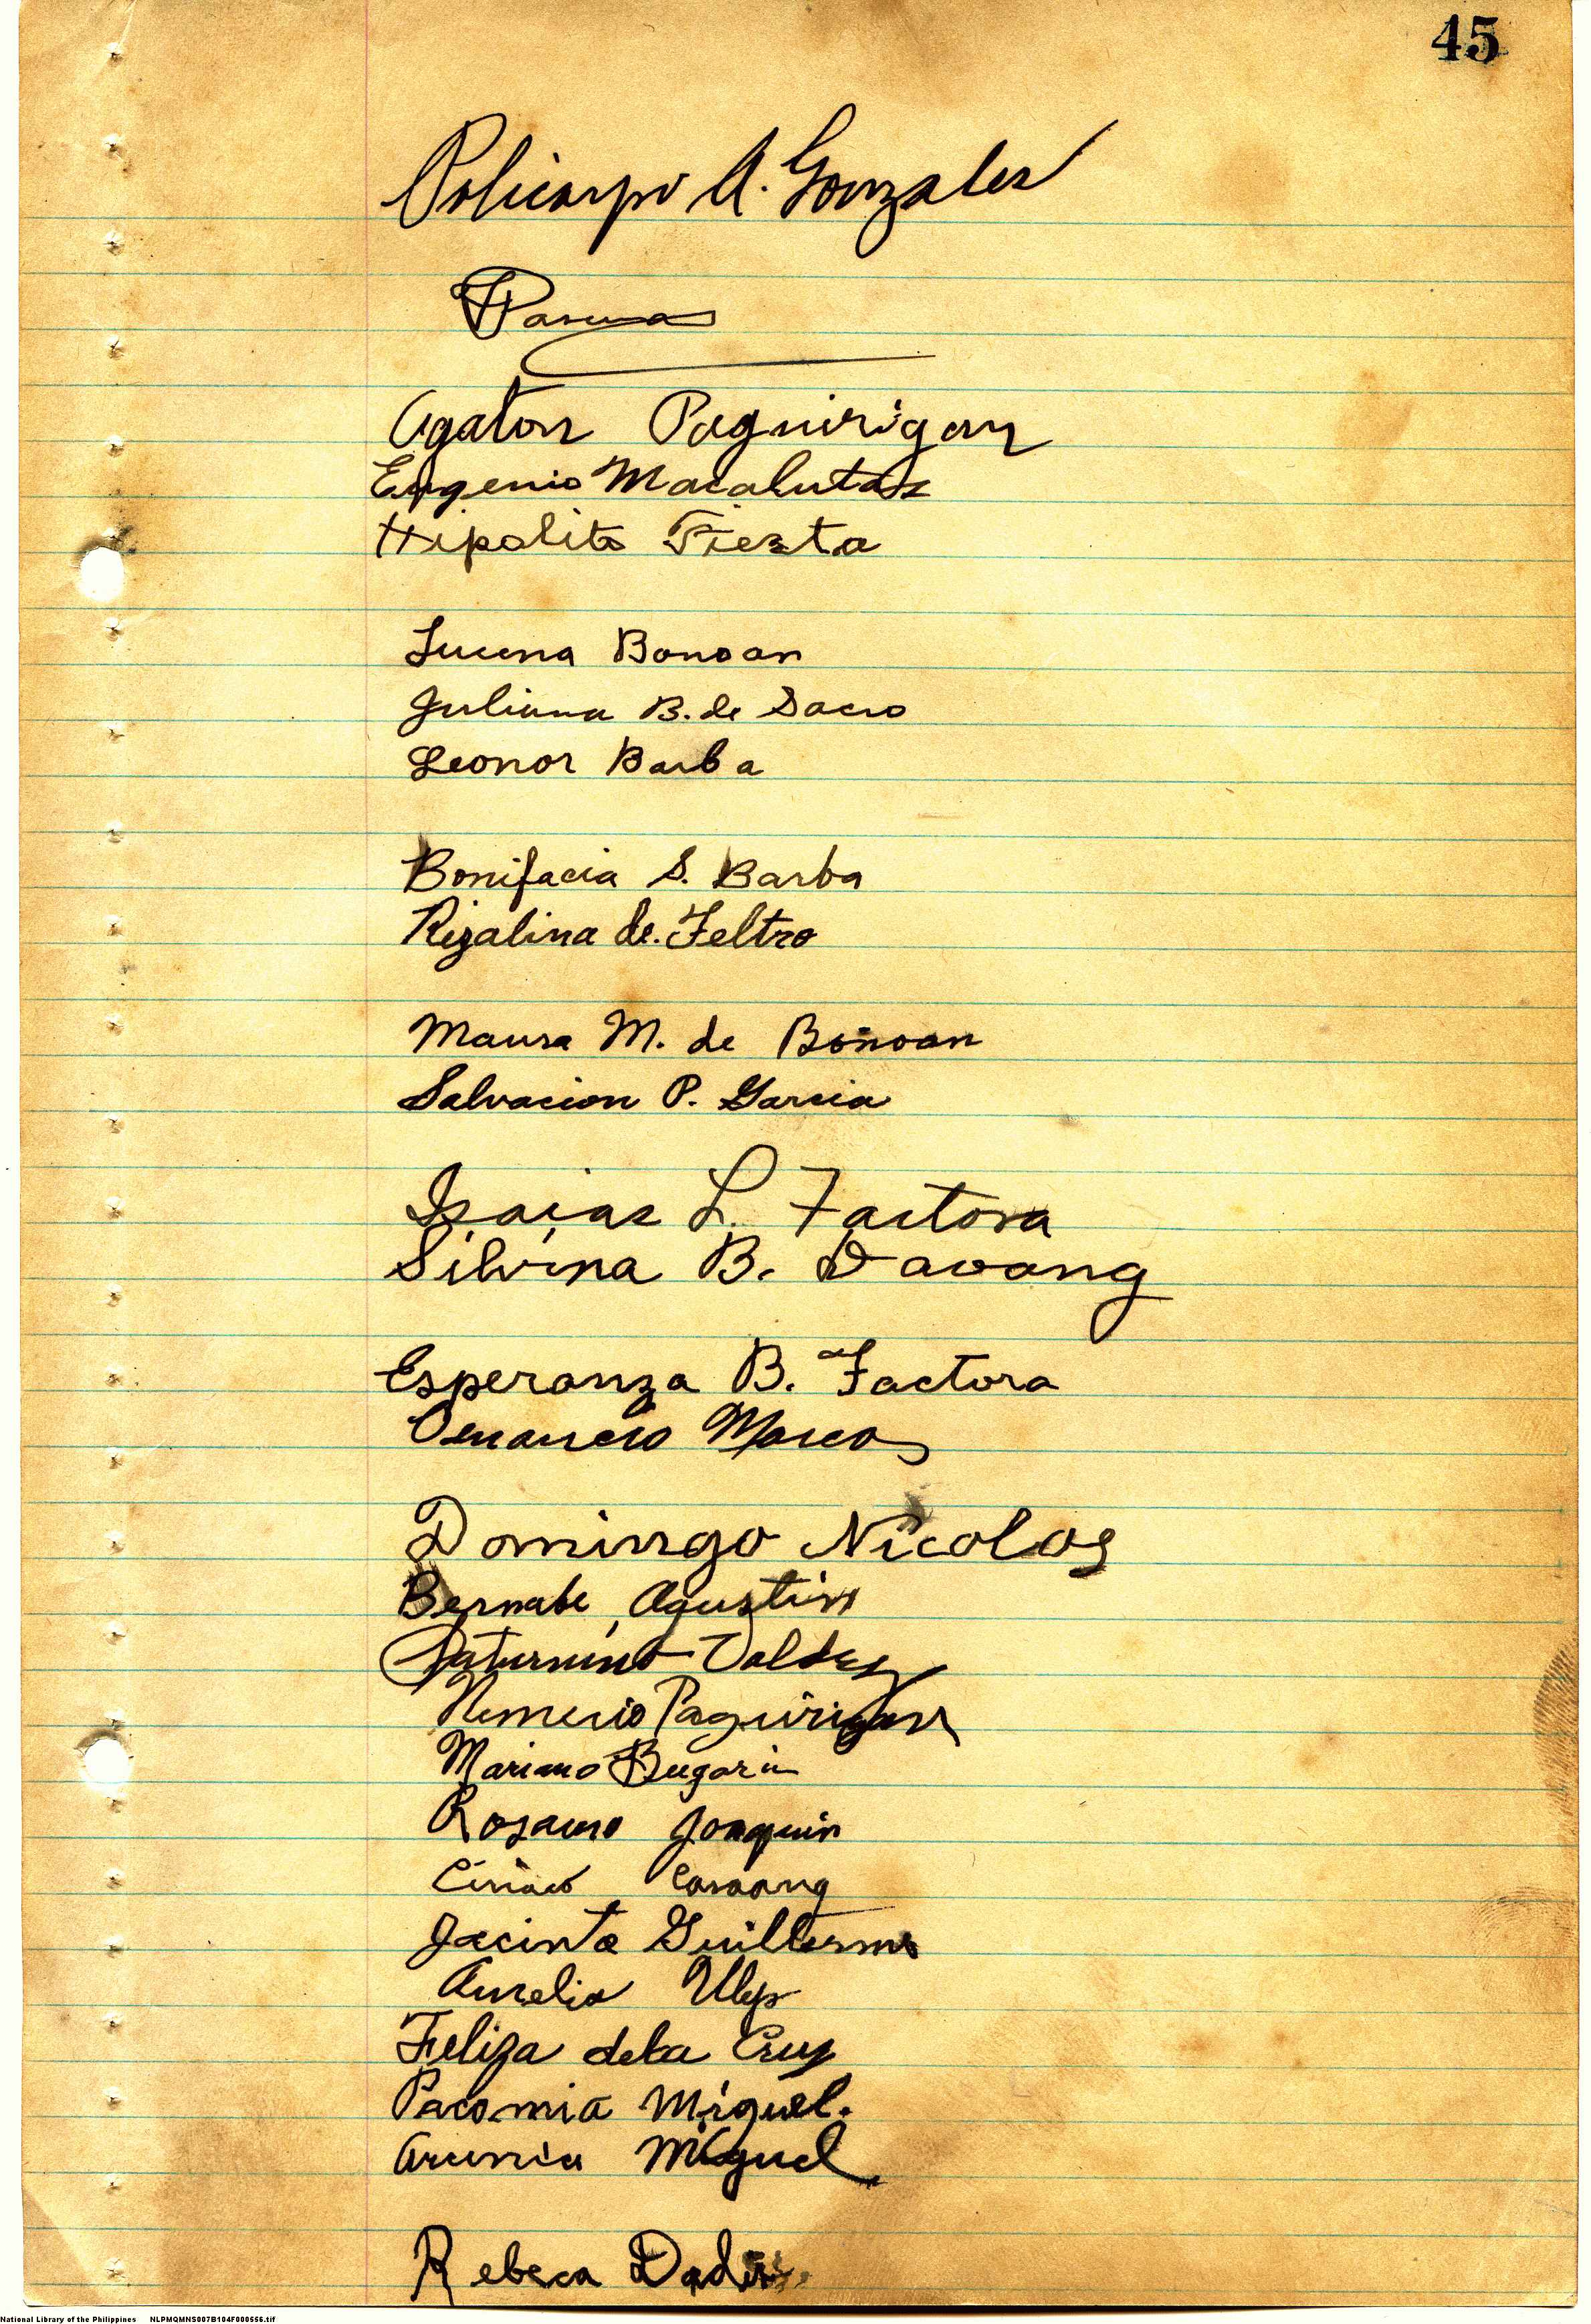 45
Policarpo A. Gonzales
Pascua
Agaton Paguirigan
Eugenio Macalutas
Hipolito Fiesta
Lucena Bonoan
Juliana B. de Sacro
Leonor Barba
Bonifacia S. Barba
Rizalina de. Feltro
Maura M. de Bonoan
Salvacion P. Garcia
Isaias L. Factora
Silvina B. Davang
Esperanza B. Factora
Venancio Marcos
Domingo Nicolas
Bernabe Agustin
Saturnino Valdez
Nemecio Paguirigan
Mariano Bugarin
Rosauro Joaquin
Ciriaco Casaang
Jacinto Guillermo
Aurelio Ulep
Feliza dela Cruz
Pacomia Miguel.
Miguel
Rebeca
National Library of the Philippines NLPMQMNS007B104F000556.tif